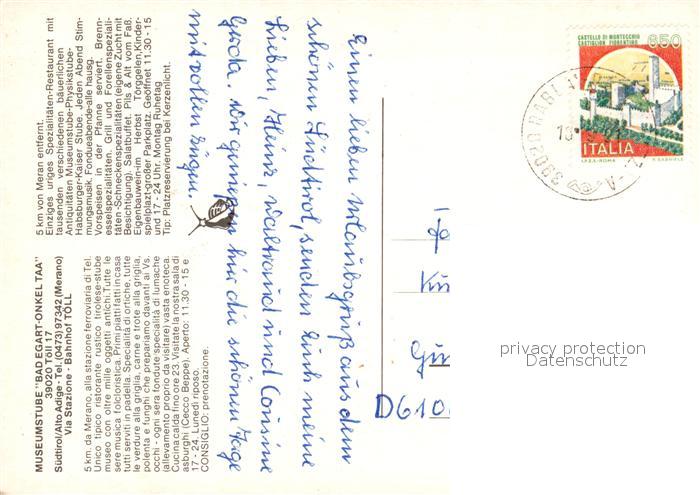 MUSEUMSTUBE "BAD EGART-ONKEL TAA"
39020 Töll 17
Südtirol/Alto Adige - Tel. (0473) 97342 (Merano)
Via Stazione - Bahnhof TÖLL
5 km. da Merano, alla stazione ferroviaria di Tel.
Unico tipico ristorante rustico tirolese-stube
museo con oltre mille oggetti antichi. Tutte le
sere musica folcloristica. Primi piatti fatti in casa
tutti serviti in padella. Specialità di ortiche, tutte
le verdure alla griglia, carne e trote alla griglia,
polenta e funghi che prepariamo davanti ai Vs.
occhi - ogni sera fondute specialità di lumache
(allevamento proprio da visitare) vasta enoteca.
Cucina calda fino ore 23. Visitate la nostra sala di
asburghi (Cecco Beppe). Aperto: 11.30 - 15 e
17 - 24. Lunedì riposo.
CONSIGLIO: prenotazione.
5 km von Meran entfernt.
Einziges uriges Spezialitäten-Restaurant mit
tausenden verschiedenen bäuerlichen
Antiquitäten Museumstube-Physikstube-
Habsburger-Kaiser Stube. Jeden Abend Stim-
mungsmusik. Fondueabende-alle hausg.
Vorspeisen in der Pfanne serviert, Brenn-
esselspezialitäten, Grill und Forellenspeziali-
täten-Schneckenspezialitäten (eigene Zucht mit
Besichtigung). Salatbuffet. Pils & Alt vom Faß.
Eigenbauwein-im Herbst Törggelen, Kinder-
spielplatz-großer Parkplatz. Geöffnet 11.30 - 15
und 17 - 24 Uhr. Montag Ruhetag
Tip: Platzreservierung bei Kerzenlicht.
Einen lieben Urlaubsgruß aus dem
schönen Südtirol, senden Euch meine
Lieben, Heinz, Waltraud und Cousine
Gerda. Wir genießen hier die schönen Tage
mit vollen Zügen.
D 610
CASTELLO DI MONTECCHIO
CASTIGLION FIORENTINO
650
ITALIA
I.P.Z.S.-ROMA
39020 RABL
privacy protection
Datenschutz